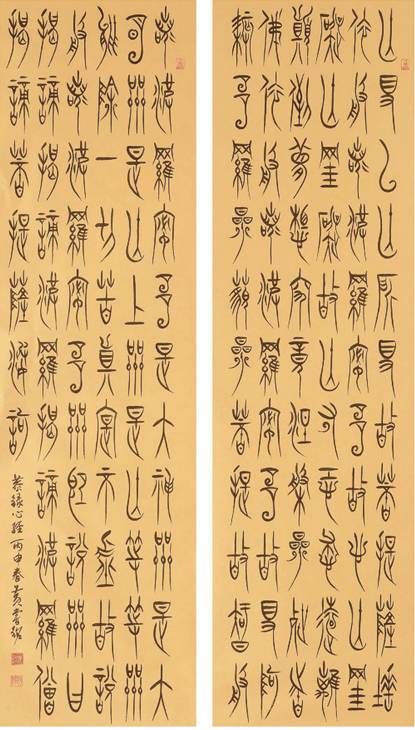 無得以無所得故菩提薩埵
依般若波羅蜜多故心無罣
礙無罣礙故無有恐怖遠離
顛倒夢想究竟涅槃三世諸
佛依般若波羅蜜多故得阿
耨多羅三藐三菩提故知般
若波羅蜜多是大神咒是大
明咒是無上咒是無等等咒
能除一切苦真實不虛故說
般若波羅蜜多咒即說咒曰
揭諦揭諦波羅揭諦波羅僧
揭諦菩提薩婆訶
恭錄心經丙申春黃